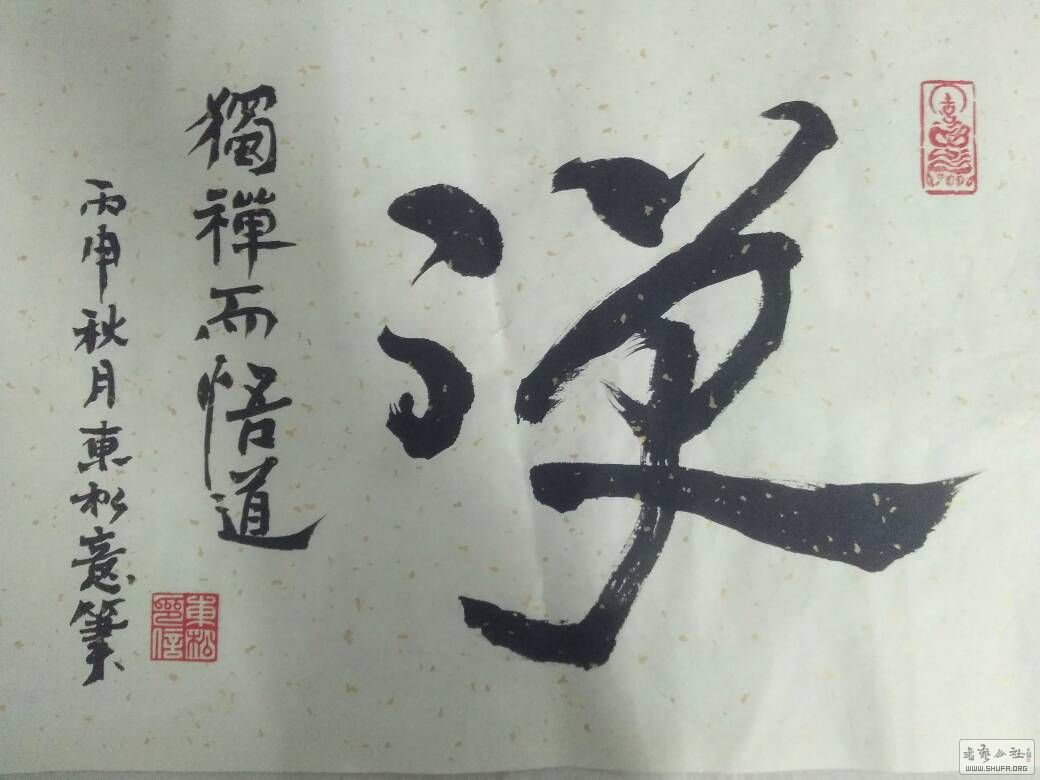 禅
獨禪而悟道
丙申秋月東松意筆
東松
印信
書藝公社
WWW.SHUFA.ORG